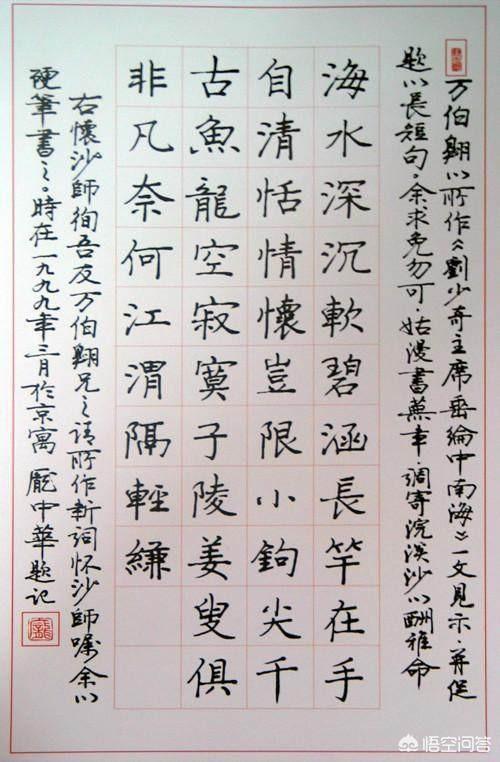 万伯翱以所作《劉少奇主席垂綸中南海》一文見示。并促
题以長短句。余求免勿可。姑漫書蕪章。調寄浣溪沙以酬雅命
海水深沉軟碧涵長竿在手
自清恬情懷豈限小鉤尖千
古魚龍空寂寞子陵姜叟俱
非凡奈何江渭隔輕縑
右懷沙師徇吾友万伯翱兄之請所作新詞怀沙師嘱余以
硬筆書之。時在一九九九年三月於京寓龐中華题记
龐
悟空问答